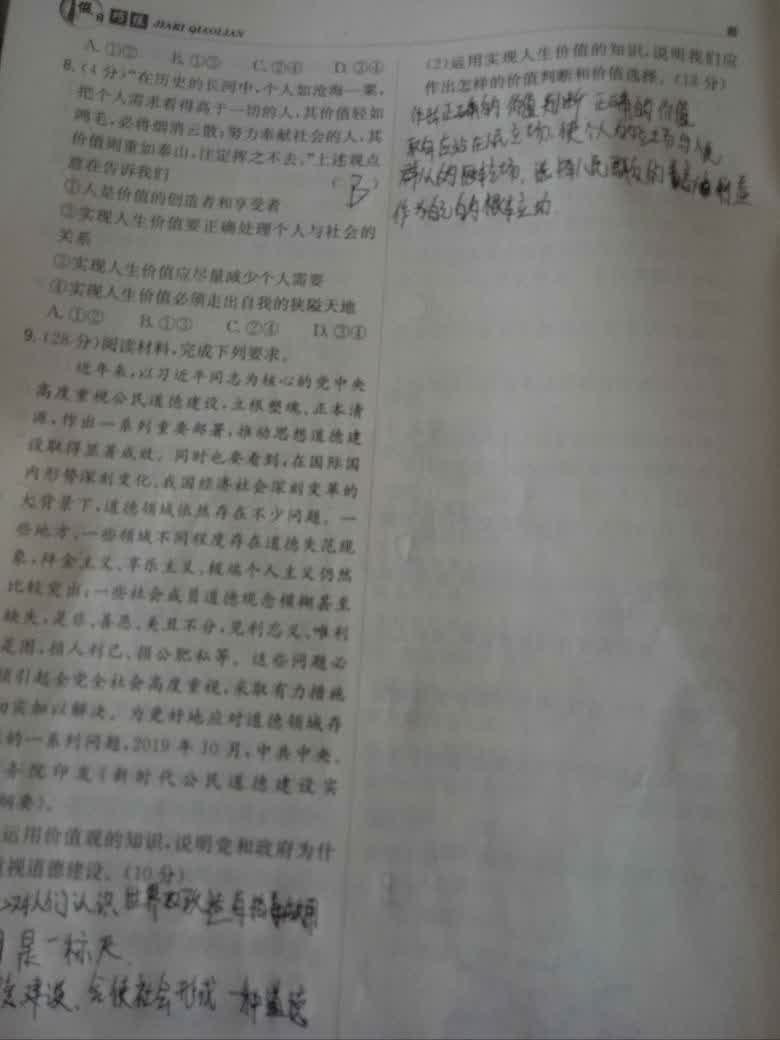 假日巧练 JIARI QIAOLIAN
A.①② B.①③ C.②④ D.③④
8.(4分)“在历史的长河中,个人如沧海一粟,
把个人需求看得高于一切的人,其价值轻如
鸿毛,必将烟消云散;努力奉献社会的人,其
价值则重如泰山,注定挥之不去。”上述观点
意在告诉我们 ( B )
①人是价值的创造者和享受者
②实现人生价值要正确处理个人与社会的
关系
③实现人生价值应尽量减少个人需要
④实现人生价值必须走出自我的狭隘天地
A.①② B.①③ C.②④ D.③④
9.(28分)阅读材料,完成下列要求。
近年来,以习近平同志为核心的党中央
高度重视公民道德建设,立根塑魂、正本清
源,作出一系列重要部署,推动思想道德建
设取得显著成效。同时也要看到,在国际国
内形势深刻变化、我国经济社会深刻变革的
大背景下,道德领域依然存在不少问题。一
些地方、一些领域不同程度存在道德失范现
象,拜金主义、享乐主义、极端个人主义仍然
比较突出;一些社会成员道德观念模糊甚至
缺失,是非、善恶、美丑不分,见利忘义、唯利
是图,损人利己、损公肥私等。这些问题必
须引起全党全社会高度重视,采取有力措施
切实加以解决。为更好地应对道德领域存
的一系列问题,2019年10月,中共中央、
务院印发《新时代公民道德建设实
纲要》。
运用价值观的知识,说明党和政府为什
视道德建设。(10分)
对人们认识世界改
是一标尺
建设、会使社会形成一种
(2)运用实现人生价值的知识,说明我们应
作出怎样的价值判断和价值选择。(18分)
作出正确的价值判断 正确的价值
取向应站在 立场,使个人的立场与人民
群众的 立场,选择人民群众的 利益
作为自己的根本立